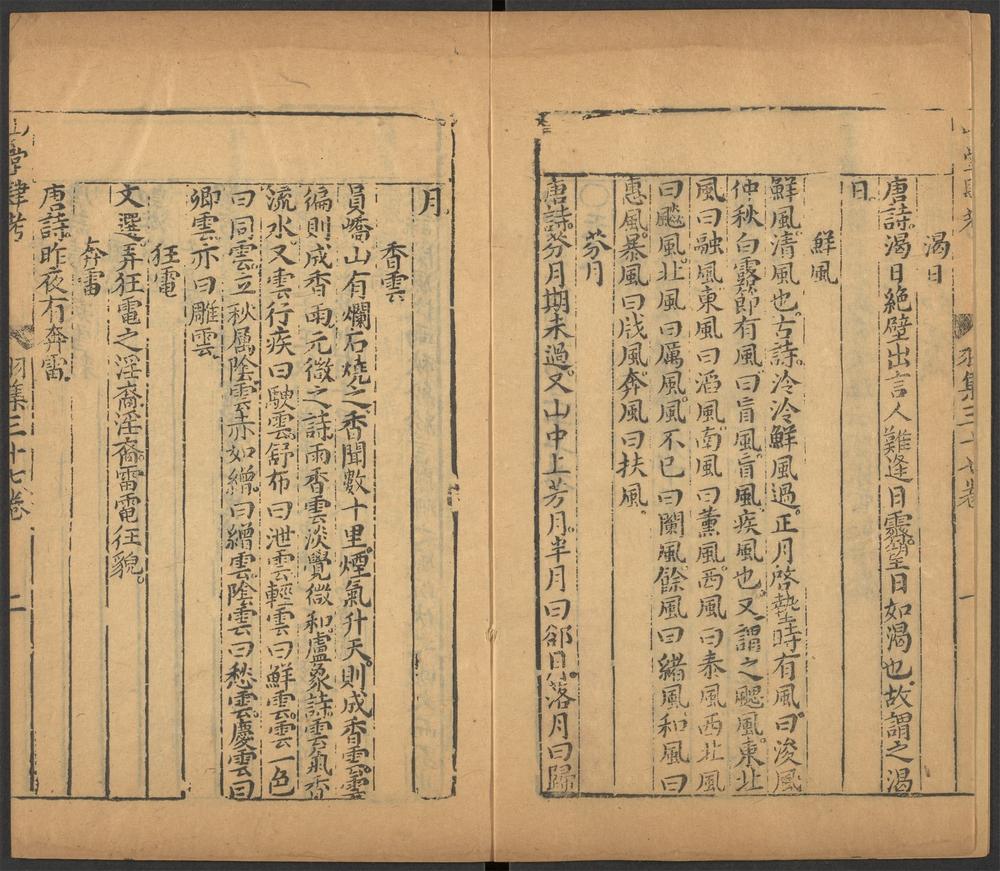 渴日
唐詩渴日絶壁出言人難逢日露望日如渴也故謂之渴
日
鮮風
鮮風清風也古詩泠泠鮮風過正月啓蟄時有風曰浚風
仲秋白露節有風曰盲風盲風疾風也又謂之颸風東北
風曰融風東風曰滔風南風曰薰風西風曰泰風西北風
曰飈風北風曰厲風風不已曰闌風餘風曰緒風和風曰
惠風暴風曰戕風奔風曰扶風
芬月
唐詩芬月期未過又山中上芳月半月曰郤月落月曰歸
月
香雲
員嶠山有爛石燒之香聞數十里煙氣升天則成香雲雲
徧則成香雨元微之詩雨香雲淡覺微和盧象詩雲氣香
流水又雲行疾曰駛雲舒布曰泄雲輕雲曰鮮雲雲一色
曰同雲立秋屬陰雲赤如繒曰繒雲陰雲曰愁雲慶雲曰
卿雲亦曰雕雲
狂電
文選弄狂電之淫裔淫裔雷電狂貌
奔雷
唐詩昨夜有奔雷
堂肆考 羽集三十七卷 二